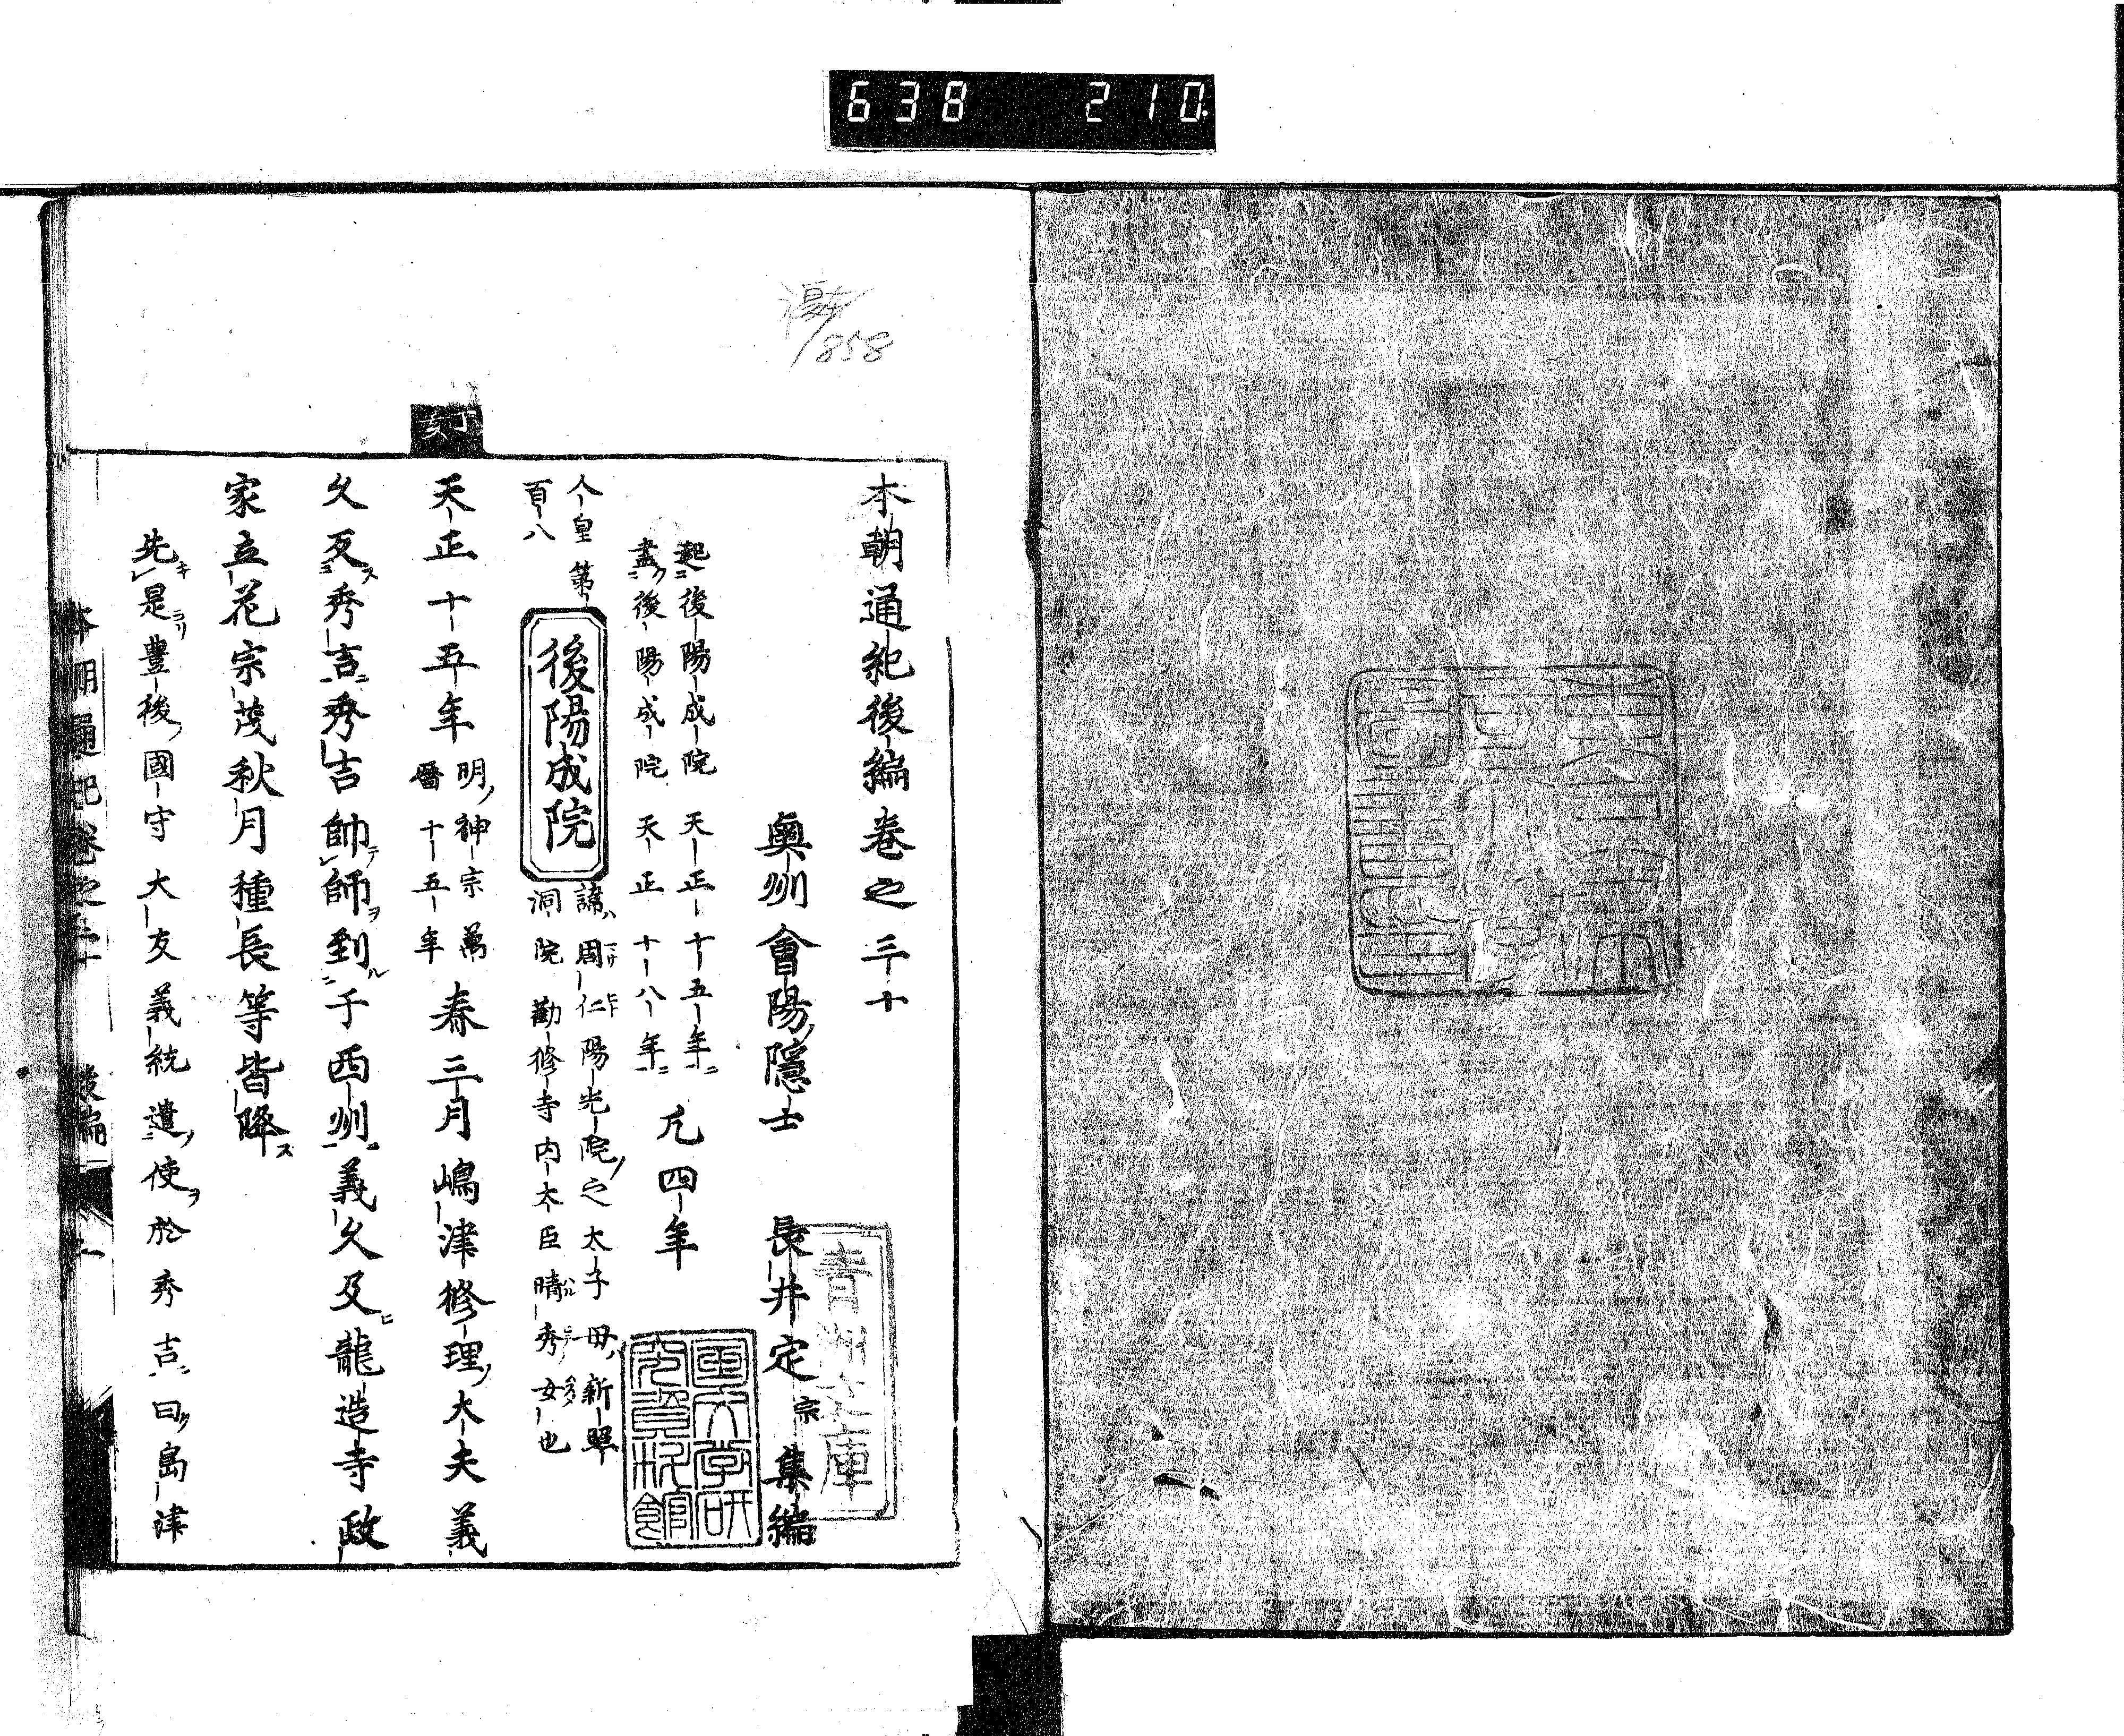 638 210
858
丁亥
本朝通紀後編巻之三十
奥州會陽ノ隱士 長井定宗 集編
起ニ後陽成院 天正十五年ニ
盡クニ後陽成院 天正十八年ニ
凡四年
人皇第
百八
後陽成院
諱ハ周仁陽光院ノ之太子母ハ新上
洞院勸修寺内大臣晴秀ノ女也
天正十五年
明ノ神宗萬
曆十五年
春三月嶋津修理ノ大夫義
久反ス秀吉ニ秀吉帥テ師ヲ到ル于西州ニ義久及ヒ龍造寺政
家立花宗茂秋月種長等皆降ス
先キレ是ヨリ豊後ノ國守大友義統遣ノ使ヲ於秀吉ニ曰ク島津
本朝通紀巻之三十 後編
青洲文庫
国文学研
究資料館